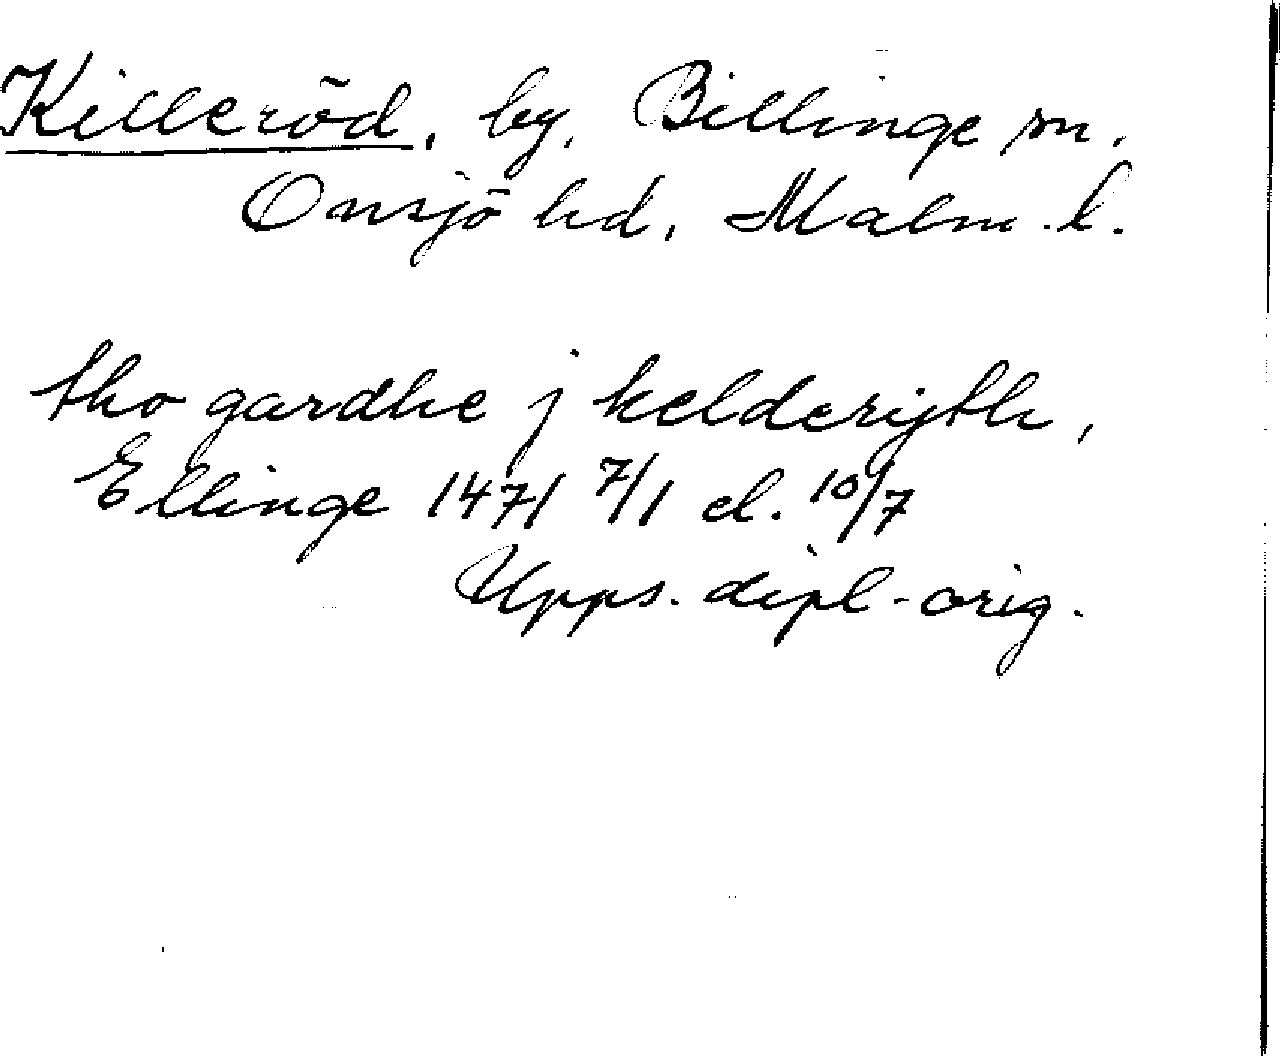 Killeröd, by, Billinge sn.
Onsjö hd, Malm. l.
tho gardhe j kelderijth,
Ellinge 1471 7/1 el. 10/7
Upps. dipl.-orig.